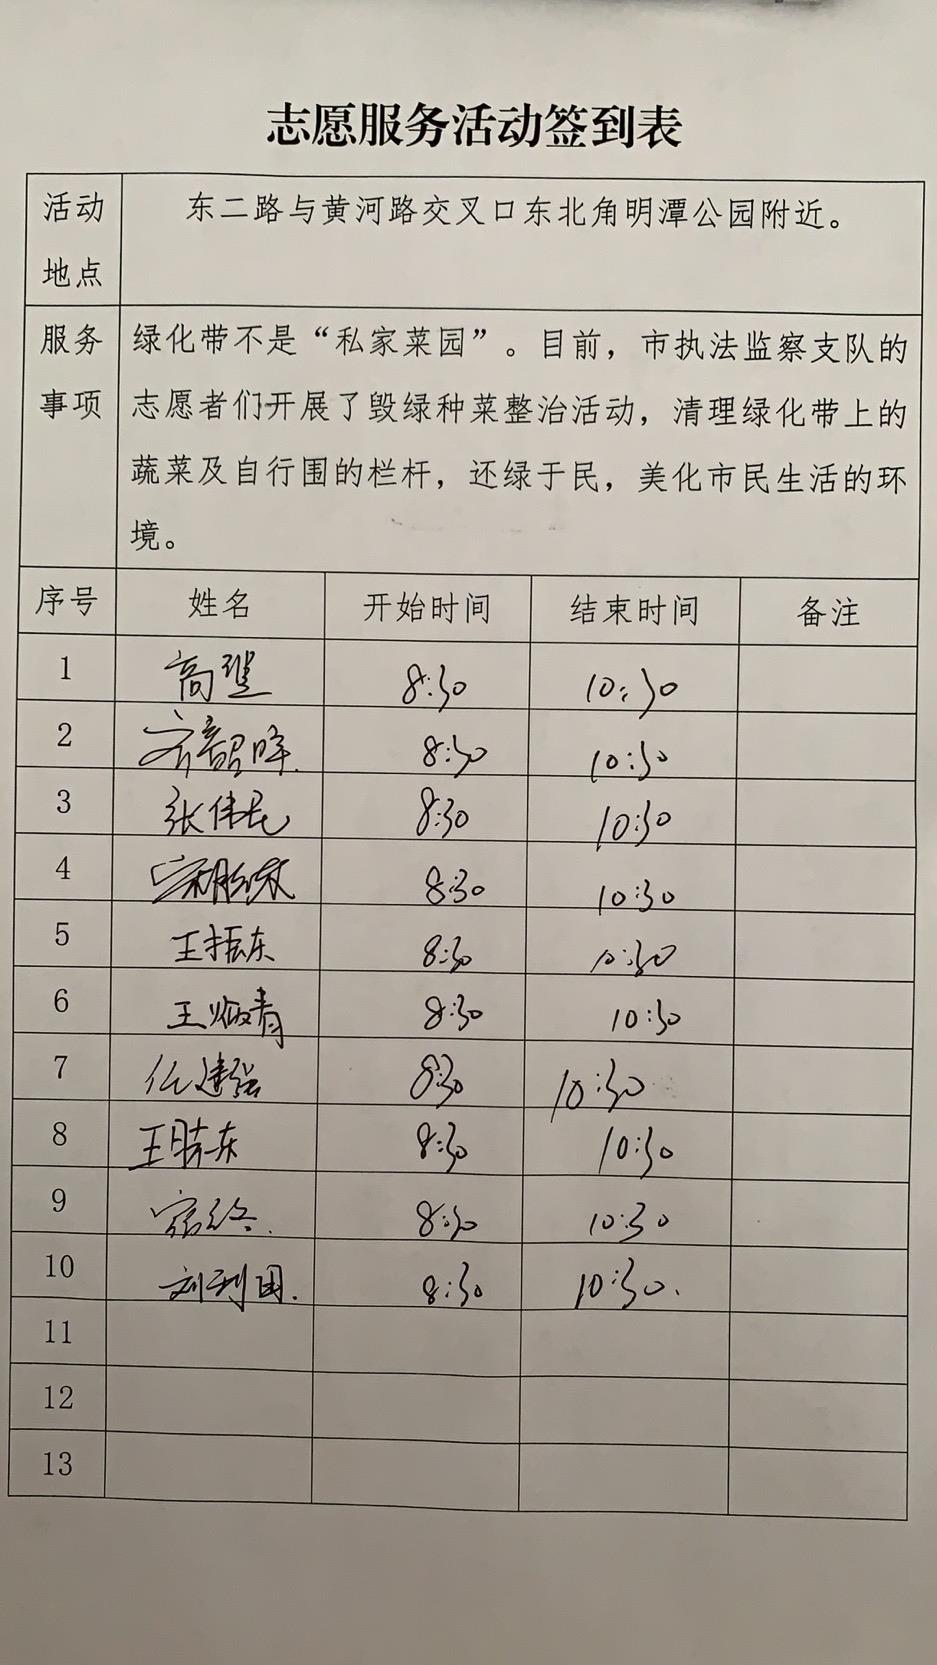 志愿服务活动签到表
活动地点 东二路与黄河路交叉口东北角明潭公园附近。
服务事项 绿化带不是“私家菜园”。目前，市执法监察支队的
志愿者们开展了毁绿种菜整治活动，清理绿化带上的
蔬菜及自行围的栏杆，还绿于民，美化市民生活的环
境。
序号 姓名 开始时间 结束时间 备注
1 高 8:30 10:30
2 齐韶晖 8:30 10:30
3 张伟民 8:30 10:30
4 8:30 10:30
5 王振东 8:30 10:30
6 王 青 8:30 10:30
7 建强 8:30 10:30
8 王 东 8:30 10:30
9 8:30 10:30
10 刘利国. 8:30 10:30.
11
12
13